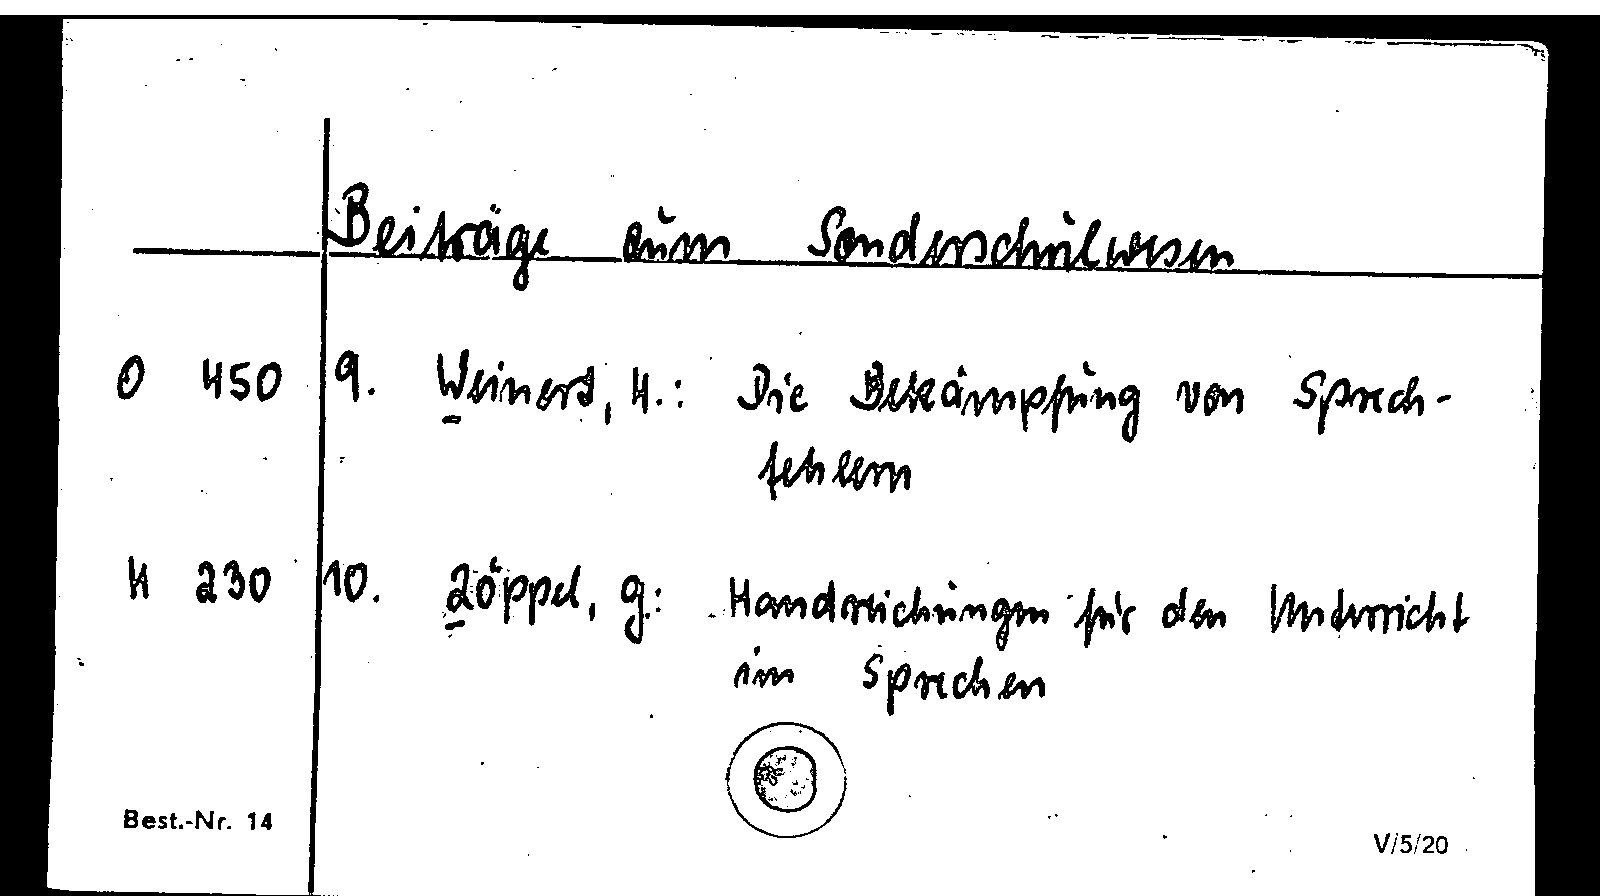 Beiträge zum Sonderschulwesen
O 450 9. Weinert, H.: Die Bekämpfung von Sprech-
fehlern
H 230 10. Zöppel, G.: Handreichungen für den Unterricht
im Sprechen
Best.-Nr. 14
V/5/20